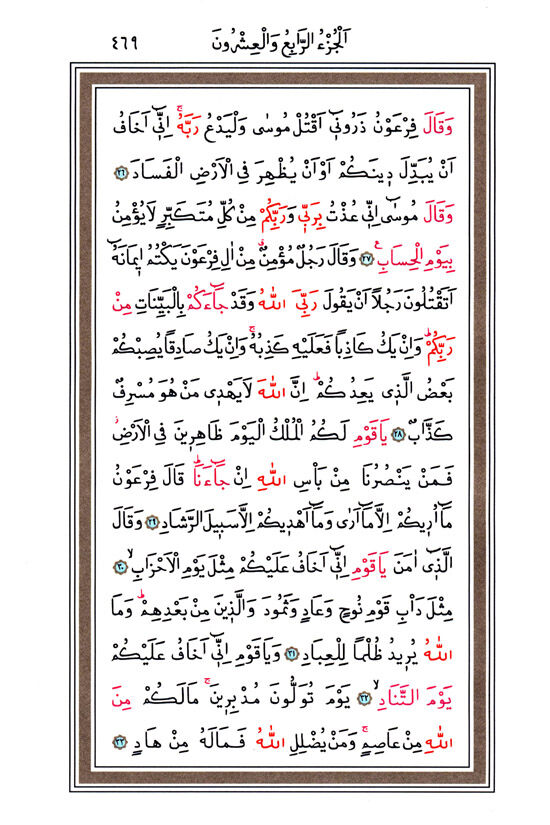 اَلْجُزْءُ الرَّابِعُ وَالْعِشْرُونَ ٤٦٩
وَقَالَ فِرْعَوْنُ ذَرُونٖٓي اَقْتُلْ مُوسٰى وَلْيَدْعُ رَبَّهُۚ اِنّٖٓي اَخَافُ
اَنْ يُبَدِّلَ دٖينَكُمْ اَوْ اَنْ يُظْهِرَ فِي الْاَرْضِ الْفَسَادَ ﴿٢٦﴾
وَقَالَ مُوسٰٓى اِنّٖي عُذْتُ بِرَبّٖي وَرَبِّكُمْ مِنْ كُلِّ مُتَكَبِّرٍ لَا يُؤْمِنُ
بِيَوْمِ الْحِسَابِۚ ﴿٢٧﴾ وَقَالَ رَجُلٌ مُؤْمِنٌۗ مِنْ اٰلِ فِرْعَوْنَ يَكْتُمُ اٖيمَانَهُٓ
اَتَقْتُلُونَ رَجُلًا اَنْ يَقُولَ رَبِّيَ اللّٰهُ وَقَدْ جَٓاءَكُمْ بِالْبَيِّنَاتِ مِنْ
رَبِّكُمْۜ وَاِنْ يَكُ كَاذِبًا فَعَلَيْهِ كَذِبُهُۚ وَاِنْ يَكُ صَادِقًا يُصِبْكُمْ
بَعْضُ الَّذٖي يَعِدُكُمْۜ اِنَّ اللّٰهَ لَا يَهْدٖي مَنْ هُوَ مُسْرِفٌ
كَذَّابٌ ﴿٢٨﴾ يَا قَوْمِ لَكُمُ الْمُلْكُ الْيَوْمَ ظَاهِرٖينَ فِي الْاَرْضِۘ
فَمَنْ يَنْصُرُنَا مِنْ بَأْسِ اللّٰهِ اِنْ جَٓاءَنَاۜ قَالَ فِرْعَوْنُ
مَٓا اُرٖيكُمْ اِلَّا مَٓا اَرٰى وَمَٓا اَهْدٖيكُمْ اِلَّا سَبٖيلَ الرَّشَادِ ﴿٢٩﴾ وَقَالَ
الَّذٖٓي اٰمَنَ يَا قَوْمِ اِنّٖٓي اَخَافُ عَلَيْكُمْ مِثْلَ يَوْمِ الْاَحْزَابِۙ ﴿٣٠﴾
مِثْلَ دَأْبِ قَوْمِ نُوحٍ وَعَادٍ وَثَمُودَ وَالَّذٖينَ مِنْ بَعْدِهِمْۜ وَمَا
اللّٰهُ يُرٖيدُ ظُلْمًا لِلْعِبَادِ ﴿٣١﴾ وَيَا قَوْمِ اِنّٖٓي اَخَافُ عَلَيْكُمْ
يَوْمَ التَّنَادِۙ ﴿٣٢﴾ يَوْمَ تُوَلُّونَ مُدْبِرٖينَۚ مَا لَكُمْ مِنَ
اللّٰهِ مِنْ عَاصِمٍۚ وَمَنْ يُضْلِلِ اللّٰهُ فَمَا لَهُ مِنْ هَادٍ ﴿٣٣﴾